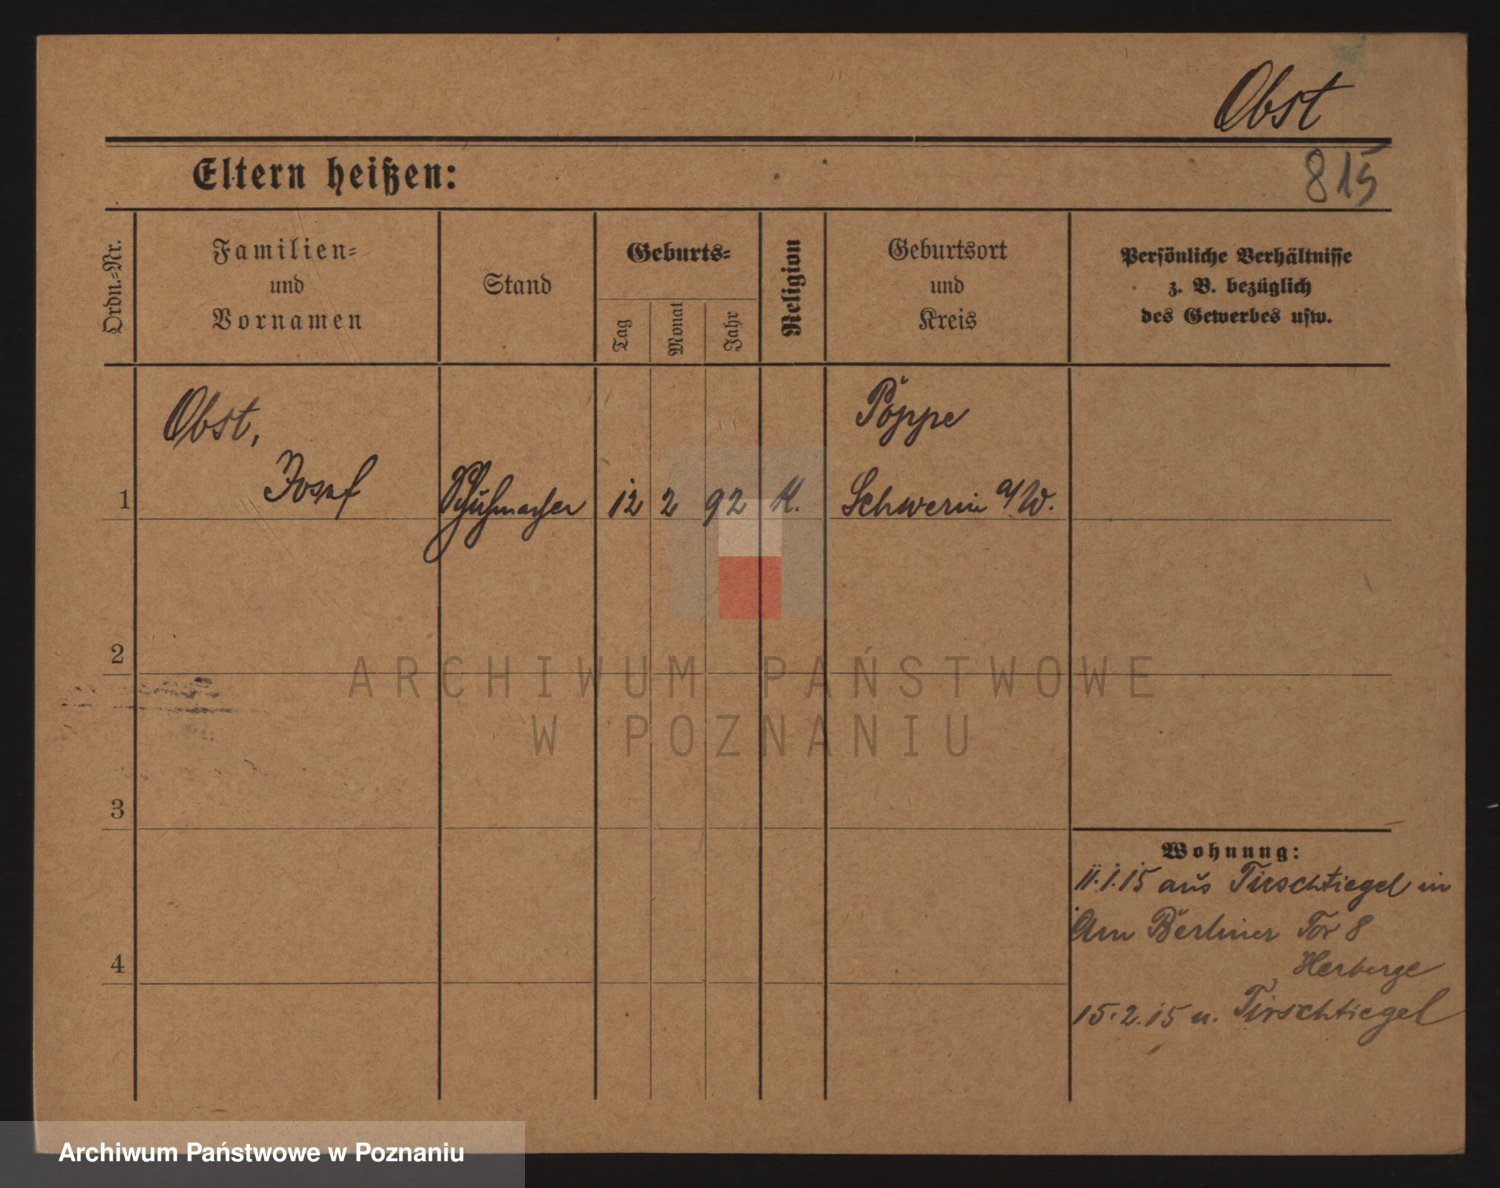 Obst
815
Eltern heißen:
Ordn.-Nr.
Familien-
und
Vornamen
Stand
Geburts-
Tag
Monat
Jahr
Religion
Geburtsort
und
Kreis
Persönliche Verhältnisse
z. B. bezüglich
des Gewerbes usw.
1
Obst,
Josef
Schuhmacher
12
2
92
K.
Poppe
Schwerin a/W.
2
3
4
Wohnung:
11.1.15 aus Tirschtiegel in
Am Berliner Tor 8
Herberge
15.2.15 n. Tirschtiegel
ARCHIWUM PAŃSTWOWE
W POZNANIU
Archiwum Państwowe w Poznaniu